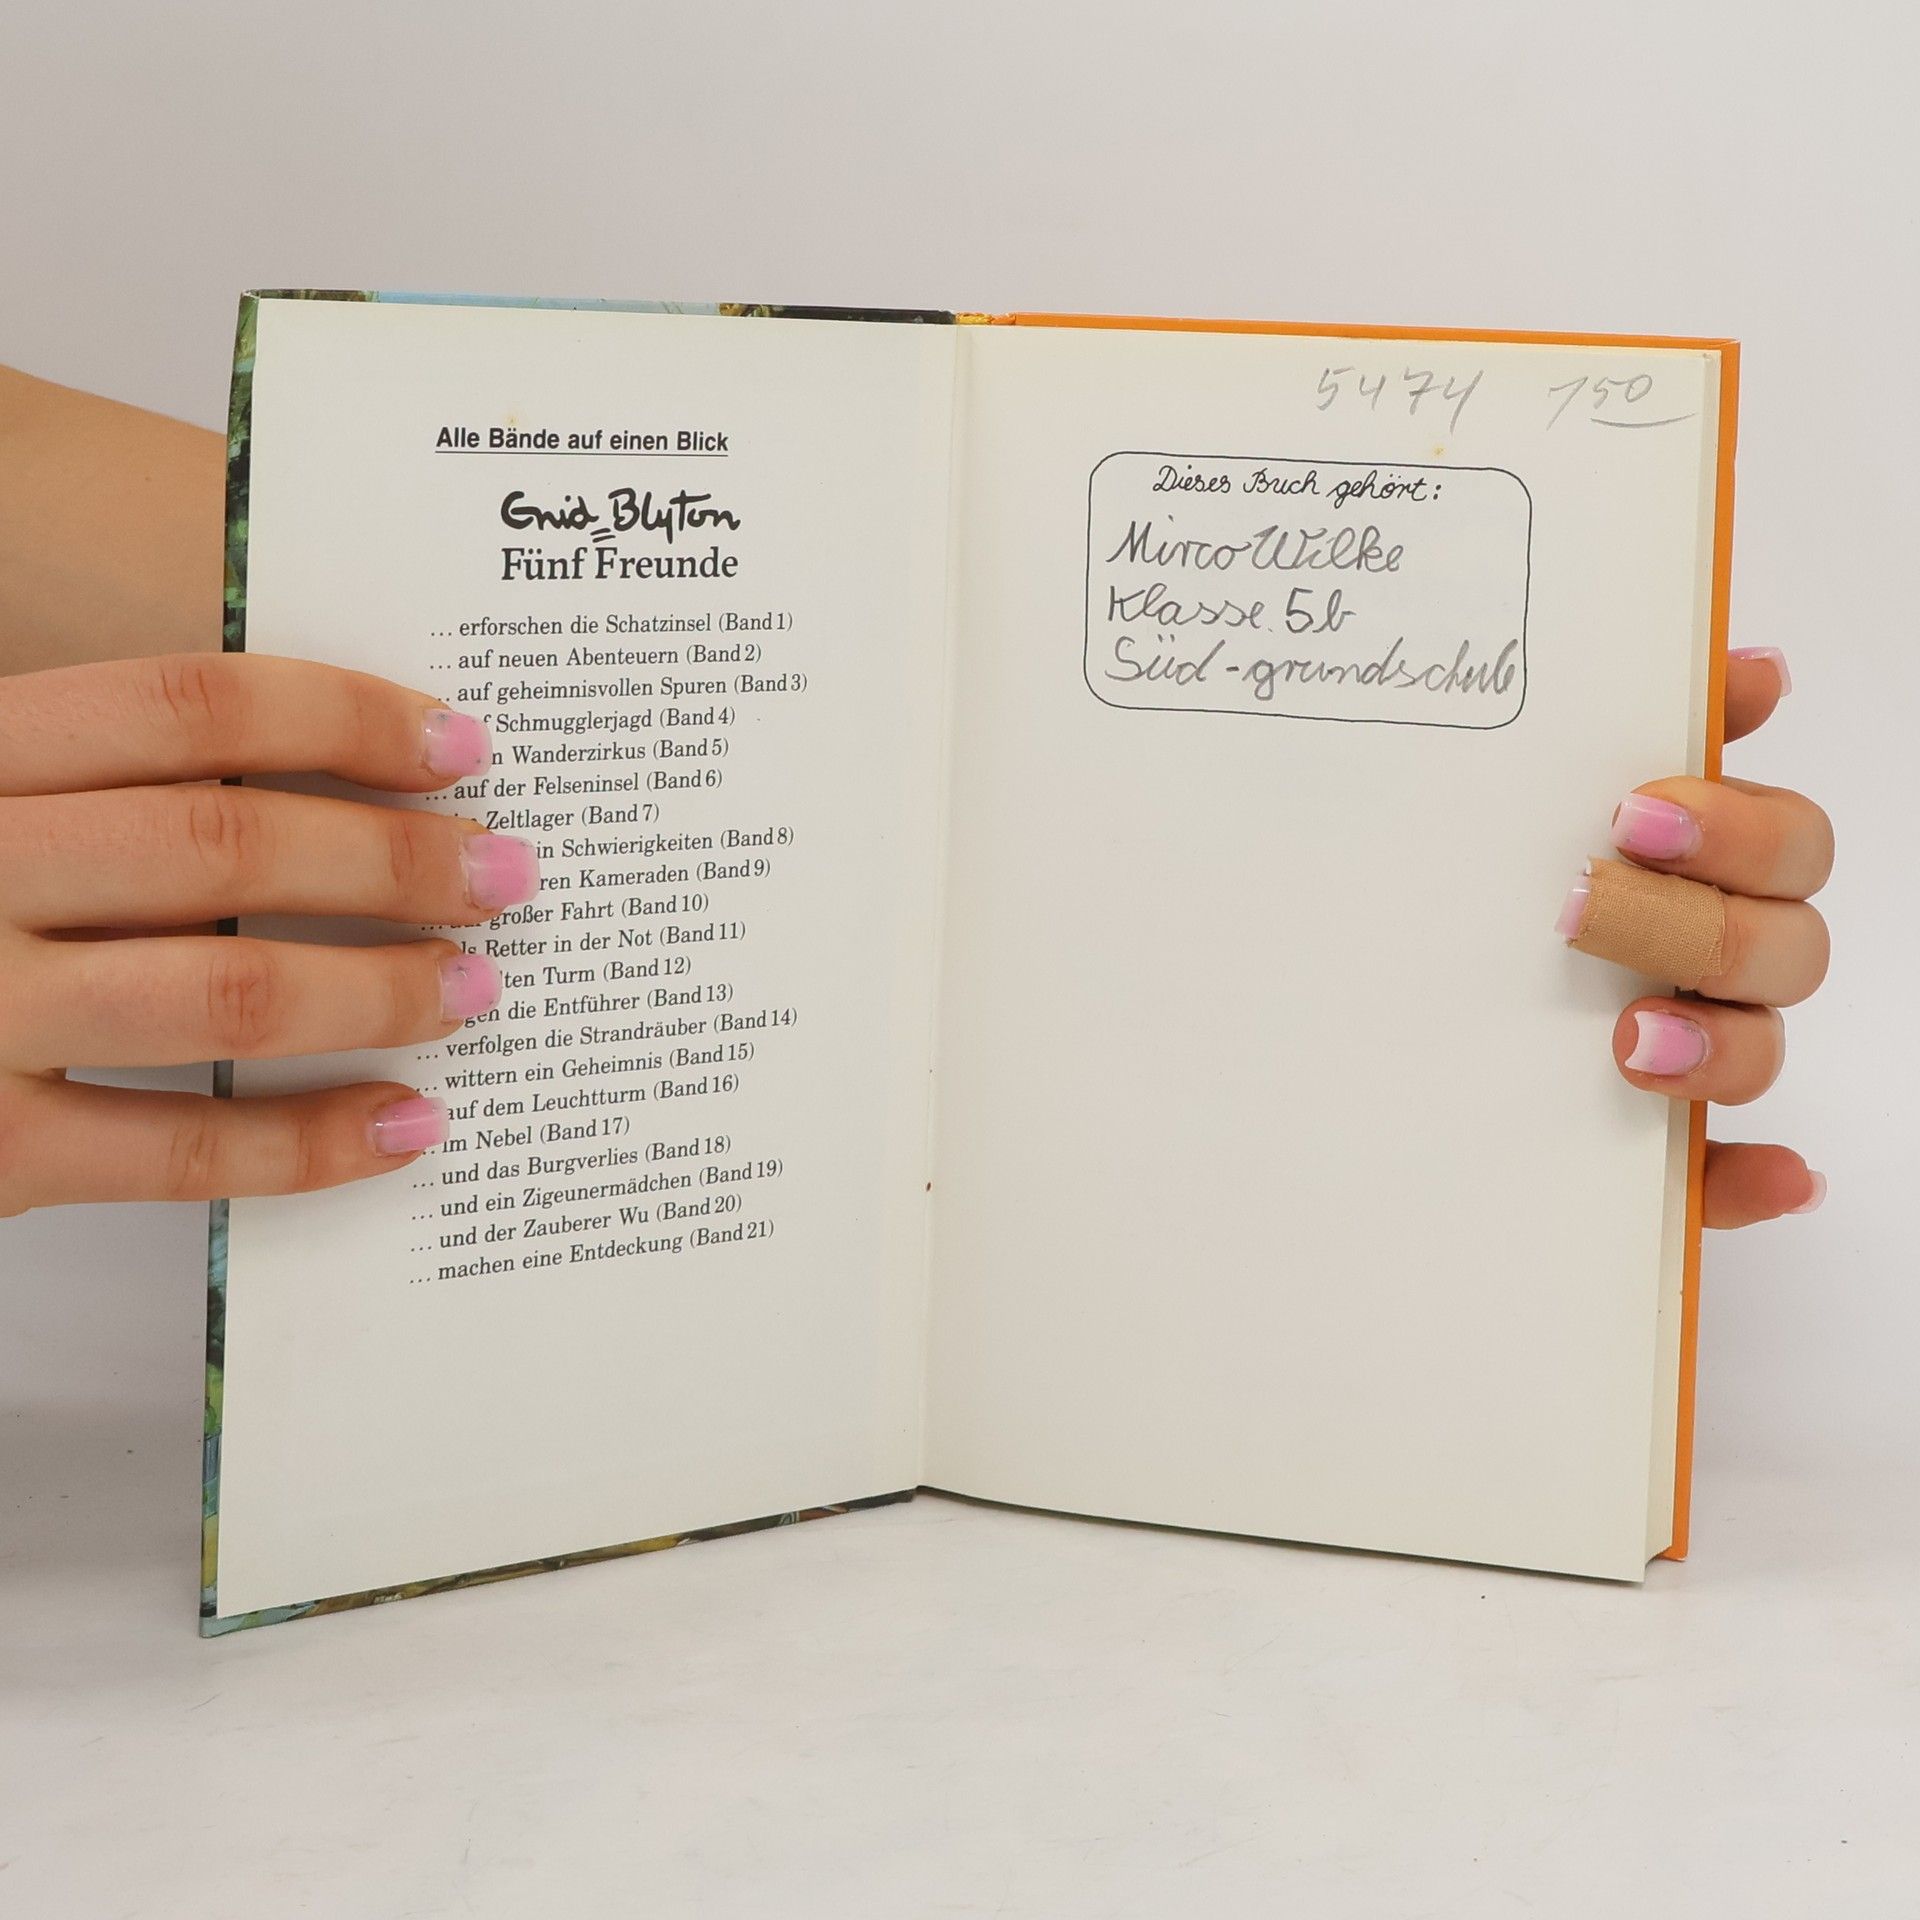 Alle Bände auf einen Blick
Enid Blyton
Fünf Freunde
... erforschen die Schatzinsel (Band 1)
... auf neuen Abenteuern (Band 2)
.. auf geheimnisvollen Spuren (Band 3)
Schmugglerjagd (Band 4)
Wanderzirkus (Band 5)
... auf der Felseninsel (Band 6)
Zeltlager (Band 7)
in Schwierigkeiten (Band 8)
ren Kameraden (Band 9)
... großer Fahrt (Band 10)
ls Retter in der Not (Band 11)
lten Turm (Band 12)
gen die Entführer (Band 13)
... verfolgen die Strandräuber (Band 14)
... wittern ein Geheimnis (Band 15)
auf dem Leuchtturm (Band 16)
.. im Nebel (Band 17)
... und das Burgverlies (Band 18)
... und ein Zigeunermädchen (Band 19)
... und der Zauberer Wu (Band 20)
... machen eine Entdeckung (Band 21)
5474 150
Dieses Buch gehört:
Mirco Wilke
Klasse 5b
Süd-grundschule